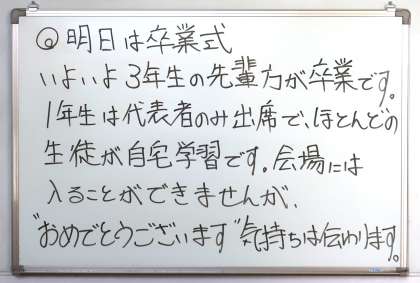 ◎明日は卒業式
いよいよ3年生の先輩方が卒業です。
1年生は代表者のみ出席で、ほとんどの
生徒が自宅学習です。会場には
入ることができませんが、
"おめでとうございます"気持ちは伝わります。